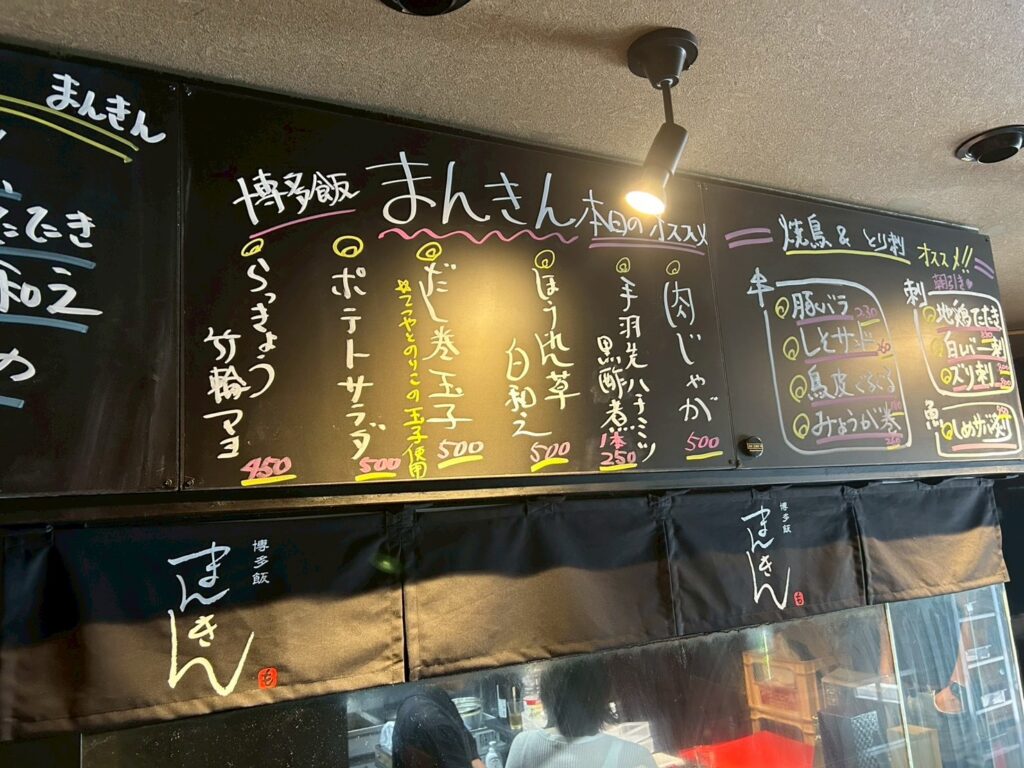 まんきん
たたき
和え
博多飯 まんきん 本日のオススメ
肉じゃが
500
手羽先ハチミツ
黒酢煮
1本
250
ほうれん草
白和え
500
だし巻玉子
500
ポテトサラダ
500
らっきょう
竹輪マヨ
450
焼鳥 & とり刺 オススメ!!
串
豚バラ
しそサンド
鳥皮ぐるぐる
みょうが巻
刺
朝引き
地鶏たたき
白レバー刺
ズリ刺
魚
しめサバ刺
博多飯
まんきん
博多飯
まんきん